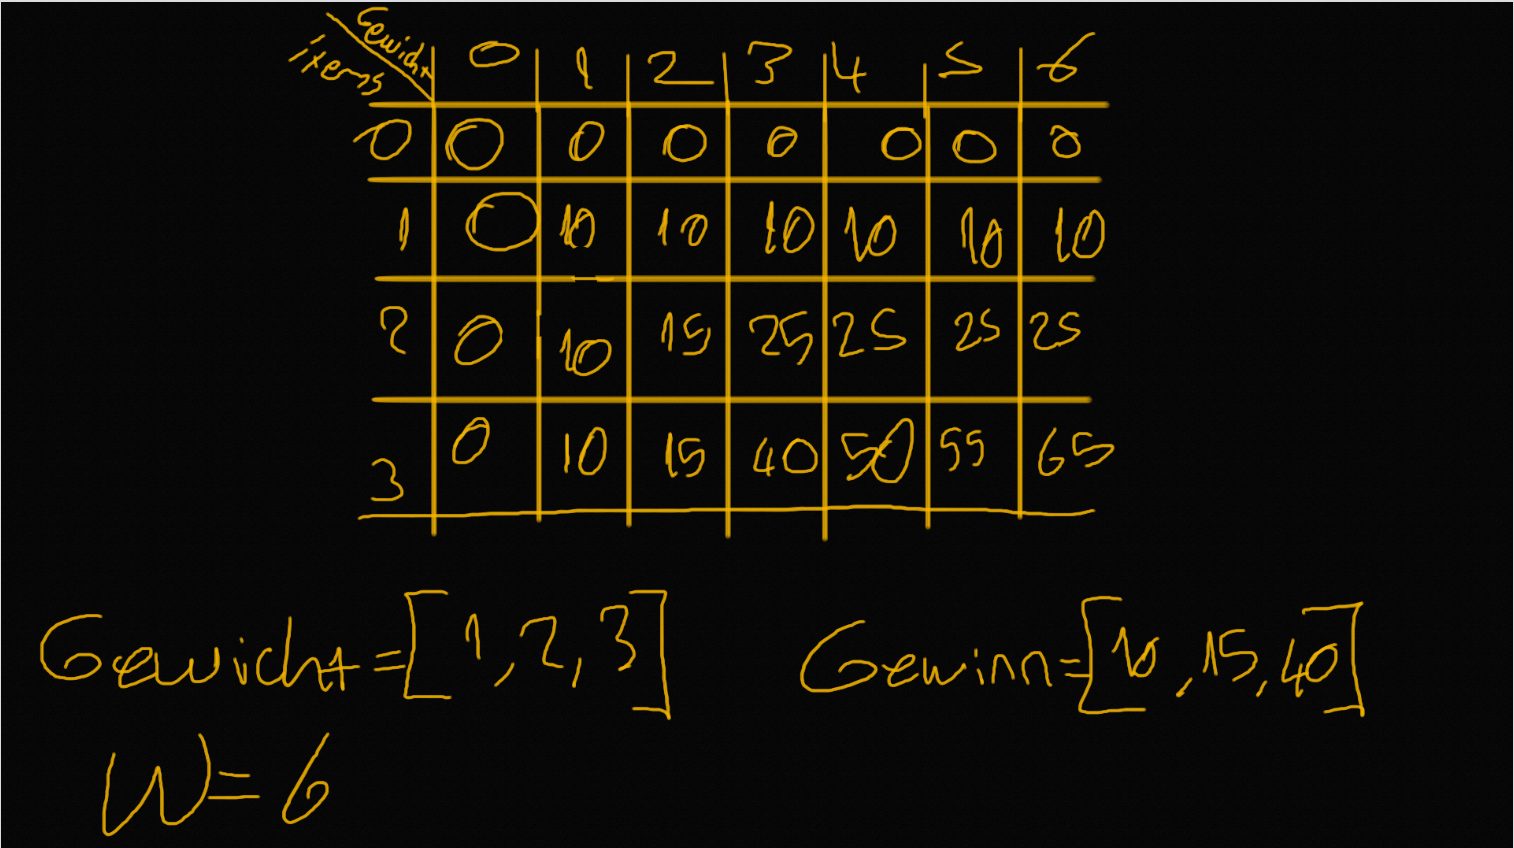 Gewicht
items
0 1 2 3 4 5 6
0 0 0 0 0 0 0 0
1 0 10 10 10 10 10 10
2 0 10 15 25 25 25 25
3 0 10 15 40 50 55 65
Gewicht=[1,2,3] Gewinn=[10,15,40]
W=6